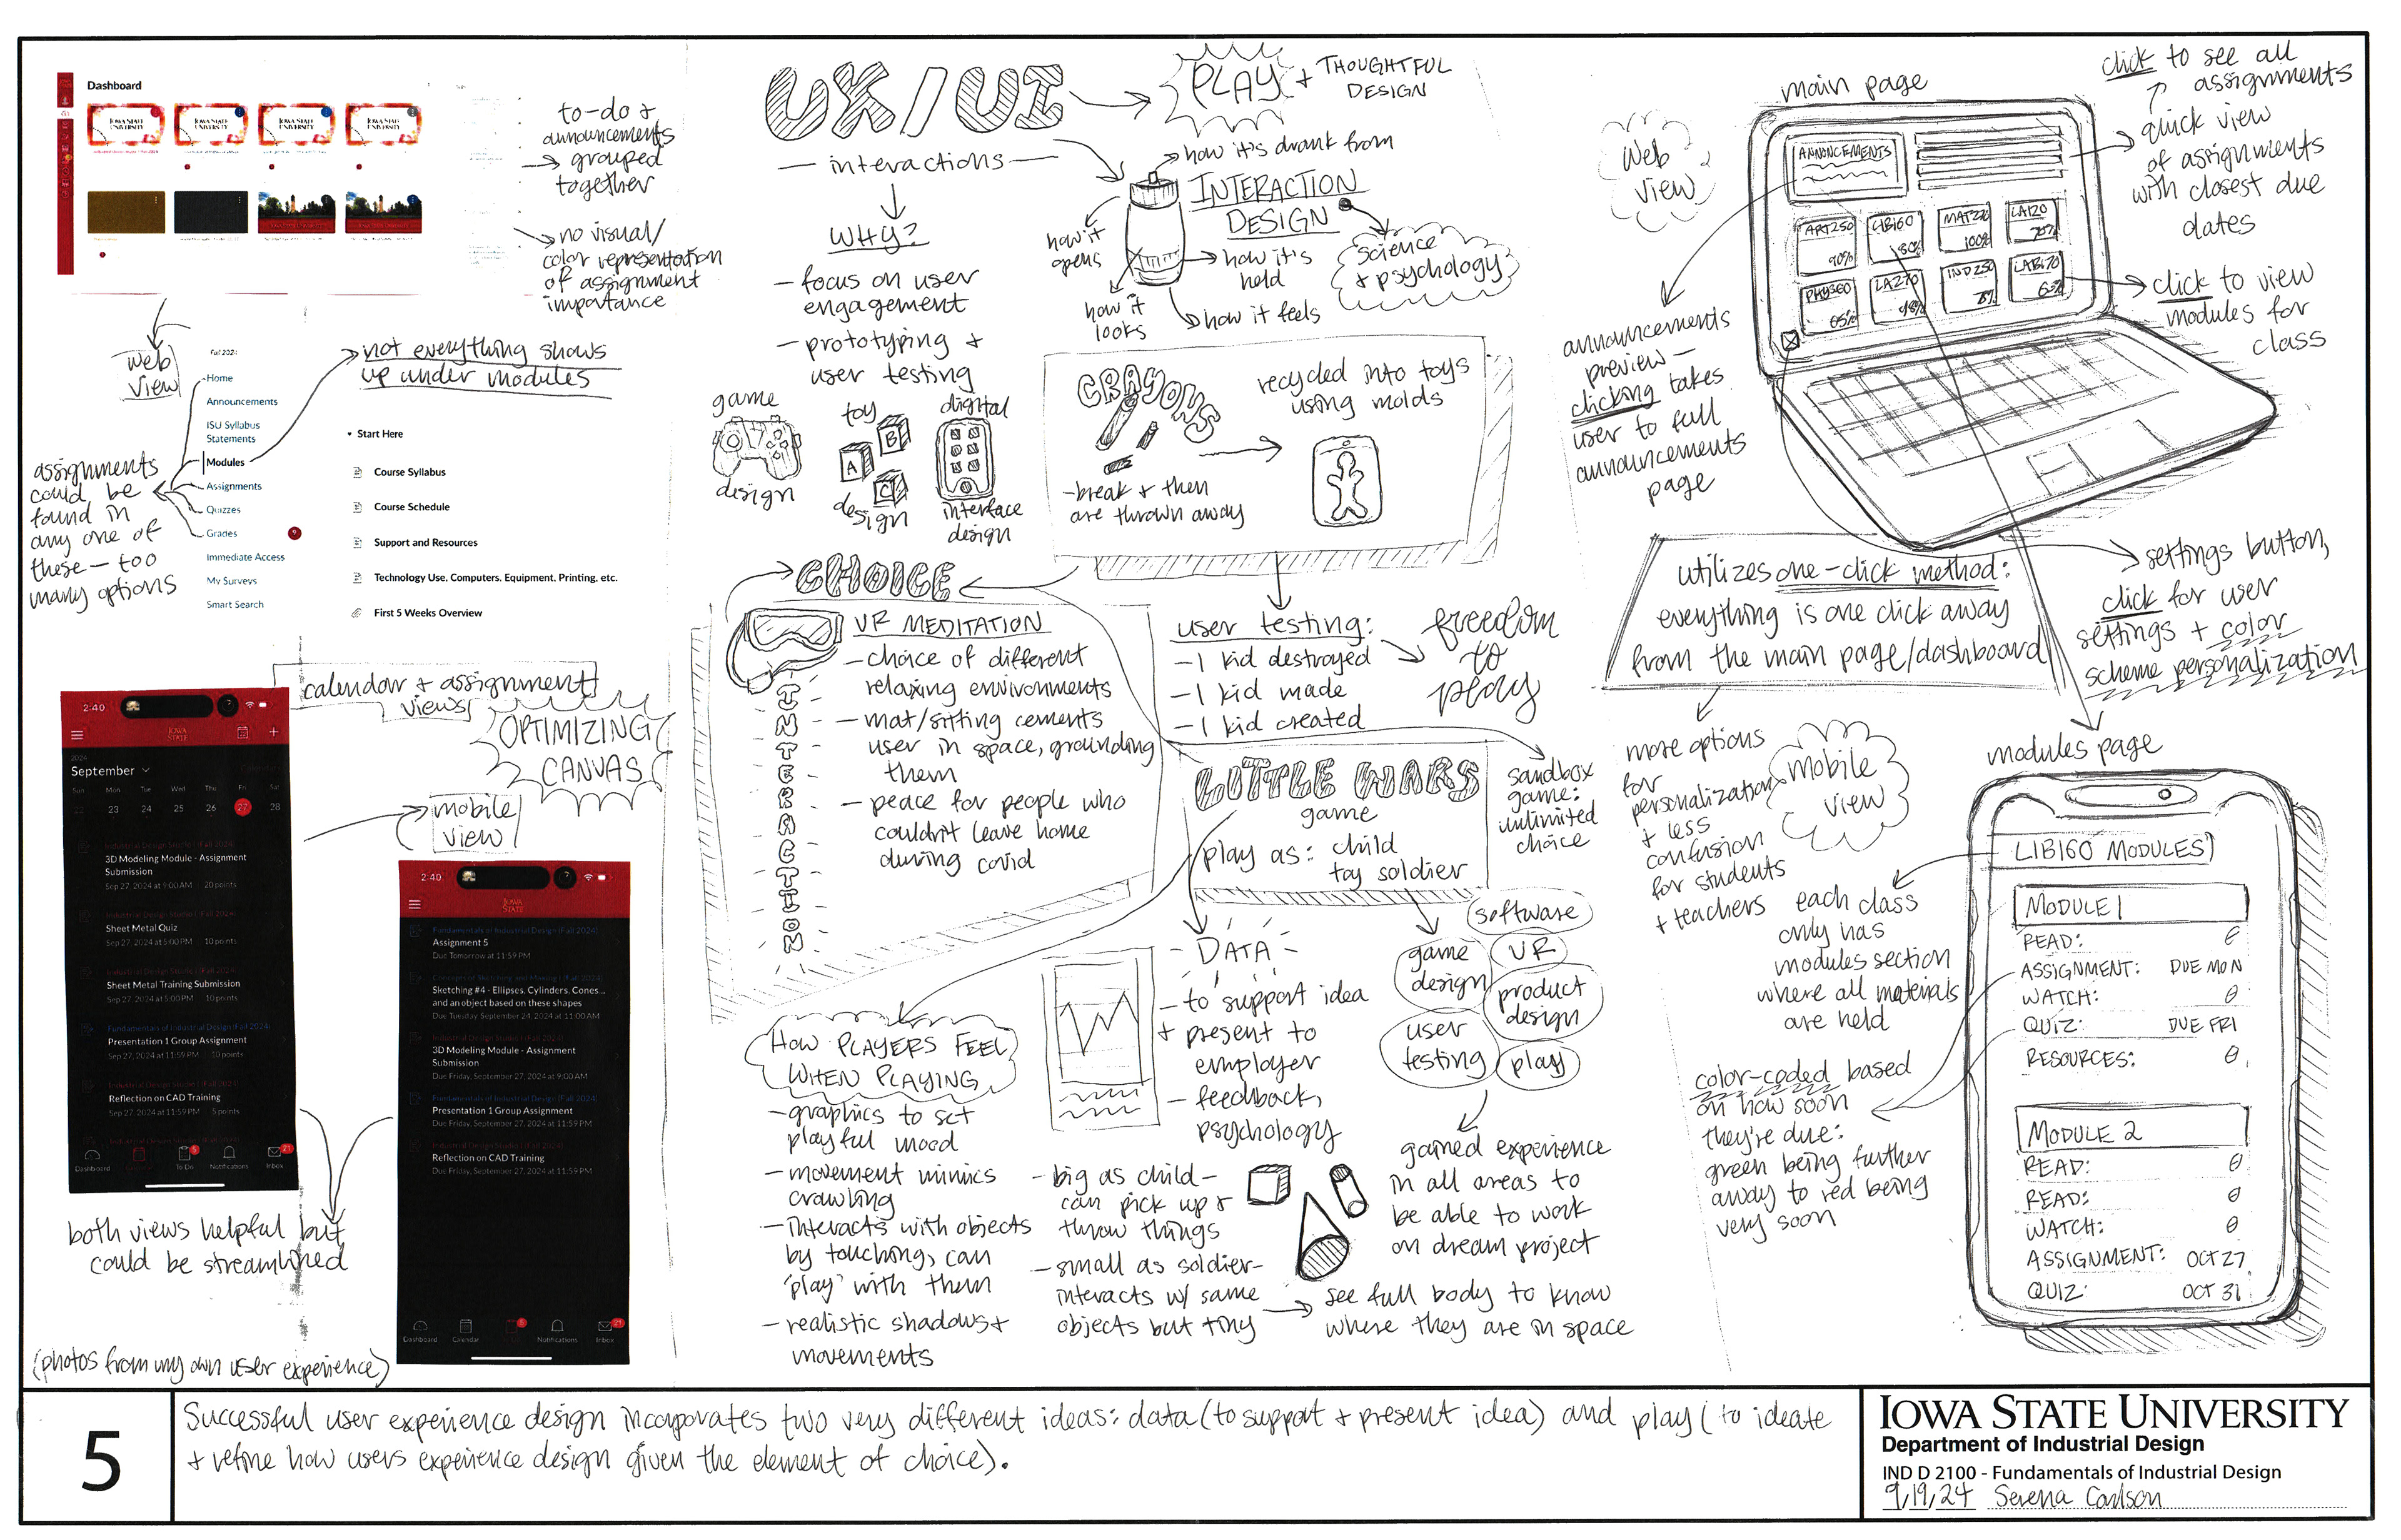 Dashboard
IOWA STATE
UNIVERSITY
IOWA STATE
UNIVERSITY
IOWA STATE
UNIVERSITY
IOWA STATE
UNIVERSITY
to-do +
announcements
→ grouped
together
no visual/
color representation
of assignment
importance
web
view
Fall 2024
Home
Announcements
ISU Syllabus
Statements
Modules
Assignments
Quizzes
Grades
9
Immediate Access
My Surveys
Smart Search
not everything shows
up under modules
Start Here
Course Syllabus
Course Schedule
Support and Resources
Technology Use, Computers, Equipment, Printing, etc.
First 5 Weeks Overview
assignments
could be
found in
any one of
these - too
many options
calendar + assignment
views
OPTIMIZING
CANVAS
mobile
view
2:40
IOWA
STATE
2024
September
Sun Mon Tue Wed Thu Fri Sat
22 23 24 25 26 27 28
Industrial Design Studio I (Fall 2024)
3D Modeling Module - Assignment
Submission
Sep 27, 2024 at 9:00 AM 20 points
Industrial Design Studio I (Fall 2024)
Sheet Metal Quiz
Sep 27, 2024 at 5:00 PM 10 points
Industrial Design Studio I (Fall 2024)
Sheet Metal Training Submission
Sep 27, 2024 at 5:00 PM 10 points
Fundamentals of Industrial Design (Fall 2024)
Presentation 1 Group Assignment
Sep 27, 2024 at 11:59 PM 10 points
Industrial Design Studio I (Fall 2024)
Reflection on CAD Training
Sep 27, 2024 at 11:59 PM 5 points
Industrial Design Studio I (Fall 2024)
Dashboard To Do 5 Notifications Inbox 21
2:40
IOWA
STATE
Fundamentals of Industrial Design (Fall 2024)
Assignment 5
Due Tomorrow at 11:59 PM
Concepts of Sketching and Making I (Fall 2024)
Sketching #4 - Ellipses, Cylinders, Cones...
and an object based on these shapes
Due Tuesday September 24, 2024 at 11:00 AM
Industrial Design Studio I (Fall 2024)
3D Modeling Module - Assignment
Submission
Due Friday, September 27, 2024 at 9:00 AM
Fundamentals of Industrial Design (Fall 2024)
Presentation 1 Group Assignment
Due Friday, September 27, 2024 at 11:59 PM
Industrial Design Studio I (Fall 2024)
Reflection on CAD Training
Due Friday, September 27, 2024 at 11:59 PM
Dashboard Calendar 5 Notifications Inbox 21
both views helpful but
could be streamlined
(photos from my own user experience)
UX/UI
PLAY + THOUGHTFUL
DESIGN
- interactions -
WHY?
- focus on user
engagement
- prototyping +
user testing
how it's drank from
INTERACTION
DESIGN
how it
opens
how it's
held
how it
looks
how it feels
science
+ psychology
game
design
toy
A
B
C
design
digital
interface
design
CRAYONS
- break + then
are thrown away
recycled into toys
using molds
CHOICE
VR MEDITATION
- choice of different
relaxing environments
- mat/sitting cements
user in space, grounding
them
- peace for people who
couldn't leave home
during covid
INTERACTION
user testing:
- 1 kid destroyed
- 1 kid made
- 1 kid created
freedom
to
play
LITTLE WARS
game
play as: child
toy soldier
sandbox
game:
unlimited
choice
HOW PLAYERS FEEL
WHEN PLAYING
- graphics to set
playful mood
- movement mimics
crawling
- interacts with objects
by touching, can
'play' with them
- realistic shadows +
movements
- DATA -
- to support idea
+ present to
employer
- feedback,
psychology
software
game
design
VR
product
design
user
testing
play
gained experience
in all areas to
be able to work
on dream project
- big as child -
can pick up +
throw things
- small as soldier -
interacts w/ same
objects but tiny
see full body to know
where they are in space
Web
view
main page
ANNONCEMENTS
ART250
90%
LIB160
80%
MAT220
100%
LA120
70%
PHYS60
65%
LA270
98%
IND250
8%
LAB170
60%
click to see all
assignments
quick view
of assignments
with closest due
dates
click to view
modules for
class
announcements
preview -
clicking takes
user to full
announcements
page
utilizes one-click method:
everything is one click away
from the main page/dashboard
settings button,
click for user
settings + color
scheme personalization
more options
for
personalization
+ less
confusion
for students
+ teachers
mobile
view
modules page
each class
only has
modules section
where all materials
are held
color-coded based
on how soon
they're due:
green being further
away to red being
very soon
LIB160 MODULES
MODULE 1
READ:
ASSIGNMENT: DUE MON
WATCH:
QUIZ: DUE FRI
RESOURCES:
MODULE 2
READ:
READ:
WATCH:
ASSIGNMENT: OCT 27
QUIZ: OCT 31
5
Successful user experience design incorporates two very different ideas: data (to support + present idea) and play (to ideate
+ refine how users experience design given the element of choice).
IOWA STATE UNIVERSITY
Department of Industrial Design
IND D 2100 - Fundamentals of Industrial Design
9,19,24 Serena Carlson